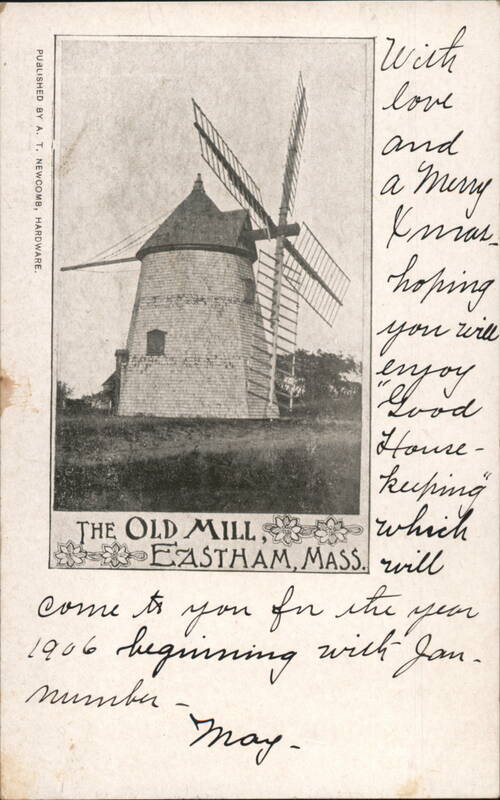 PUBLISHED BY A. T. NEWCOMB, HARDWARE.
THE OLD MILL,
EASTHAM, MASS.
With
love
and
a Merry
Xmas-
hoping
you will
enjoy
"Good
House-
keeping"
which
will
come to you for the year
1906 beginning with Jan-
number-
May-